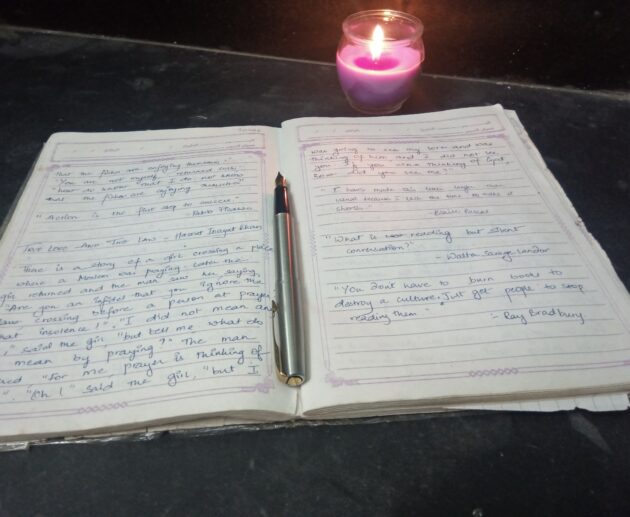 that the fishes are enjoying themselves?"
"You are not myself," returned
that the fishes are enjoying themselves?"
"Action is the first step to success.
- Pablo Picasso
True Love And True Law - Hazrat Inayat Khan
"There is a story of a girl crossing a place
where a Moslem was praying. Later the
girl returned and the man said her saying,
"Are you an infidel that you ignore the
law crossing before a person at prayer
that insolence!", "I did not mean any
," said the girl "but tell me what do
mean by praying?" The man
"For me prayer is thinking of
", "Oh!" said the girl, "but I
was going to see my love and was
thinking of him and I did not see
you. If you were thinking of God,
how did you see me?"
I have made this letter longer than
usual because I lack the time to make it
shorter.
Blaise Pascal
"What is reading but silent
conversation?"
- Walter Savage Landor
"You don't have to burn books to
destroy a culture. Just get people to stop
reading them"
- Ray Bradbury